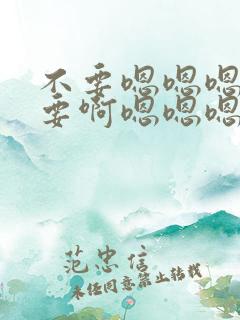 不要嗯嗯嗯
要啊嗯嗯嗯
范忠信
未经同意禁止转载